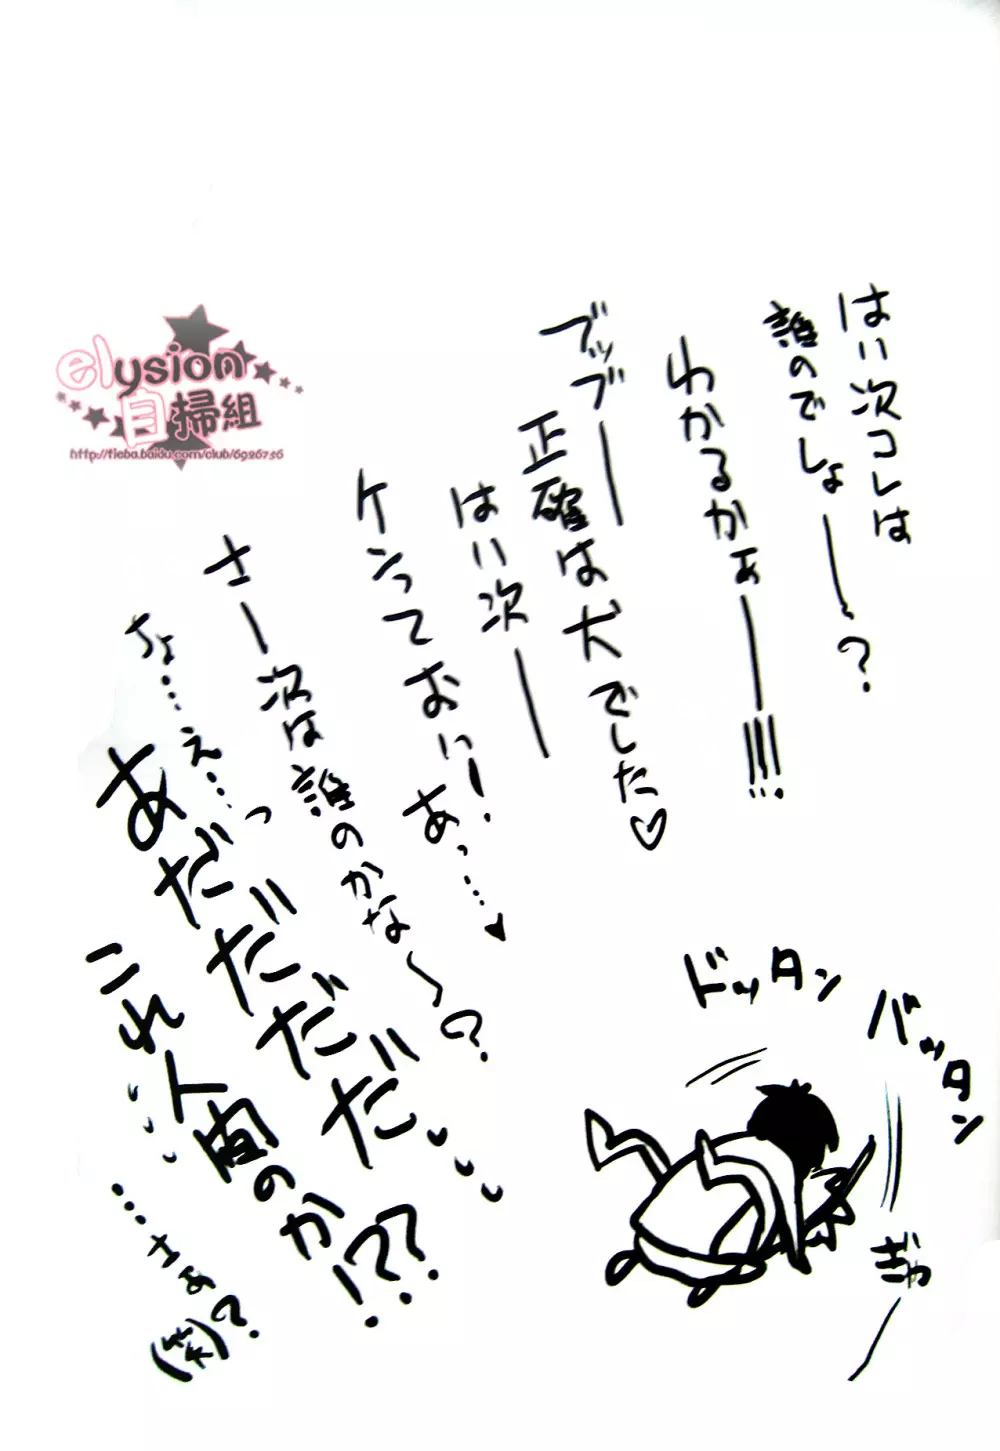 はい次コレは
誰のでしょーー〜?
わかるかぁーー!!!!
ブッブーー
正確は犬でした♡
はい次ーー
ケンっておい!
あっ…♥
さー次は誰のかな〜?
ちょ…え…っ
あだだだだだ
これ人間のか!???
…さぁ(笑)?
ドッタン
バッタン
ぎゃー
elysion
自掃組
http://tieba.baidu.com/club/6926756